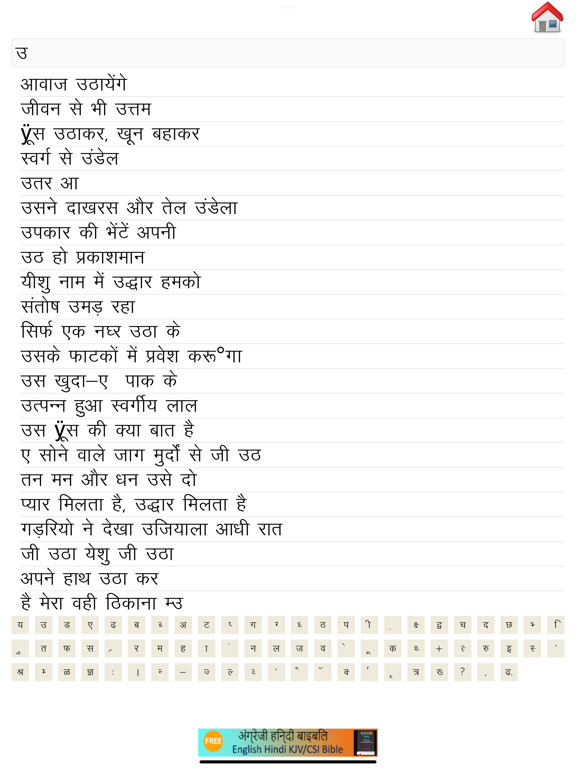 उ
आवाज उठायेंगे
जीवन से भी उत्तम
ÿूस उठाकर, खून बहाकर
स्वर्ग से उंडेल
उतर आ
उसने दाखरस और तेल उंडेला
उपकार की भेंटें अपनी
उठ हो प्रकाशमान
यीशु नाम में उद्धार हमको
संतोष उमड़ रहा
सिर्फ एक नघ्र उठा के
उसके फाटकों में प्रवेश करू°गा
उस खुदा–ए पाक के
उत्पन्न हुआ स्वर्गीय लाल
उस ÿूस की क्या बात है
ए सोने वाले जाग मुर्दों से जी उठ
तन मन और धन उसे दो
प्यार मिलता है, उद्धार मिलता है
गड़रियो ने देखा उजियाला आधी रात
जी उठा येशु जी उठा
अपने हाथ उठा कर
है मेरा वही ठिकाना म्उ
य उ ड ए ढ ब ब् अ ट प् ग ग् ध् ठ प ी ़ क्ष द्व च द छ भ् ि
ु त फ स ्र र म ह ा ं न ल ज व े ू क थ् + त् रु इ स् '
श्र म् ळ ज्ञ : । न् – ज् ल् व् ' ै ॅ क् र् ृ त्र ख् ? . ढ़
FREE अंग्रेजी हिन्दी बाइबलि
English Hindi KJV/CSI Bible